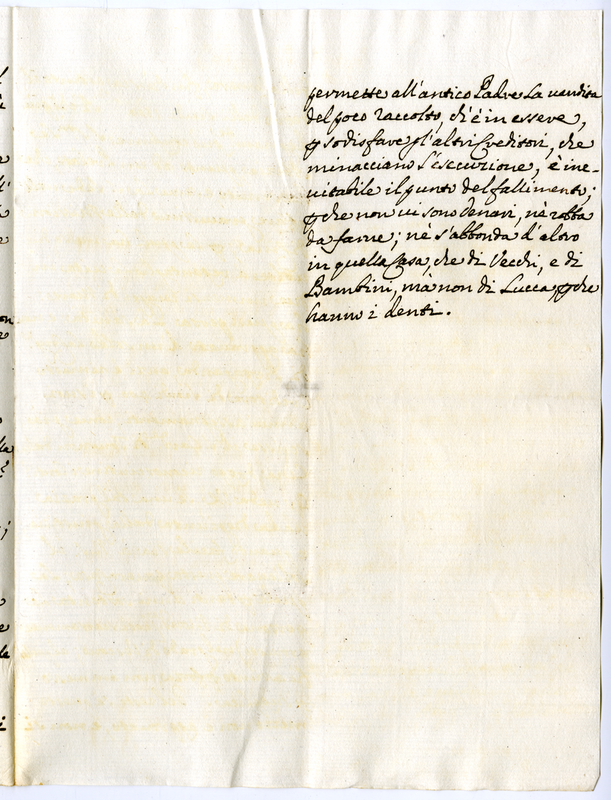 permette all'antico Padre la vendita
del poco raccolto, ch'è in essere,
p sodisfare gl'altri Creditori, che
minacciano l'esecuzione, è ine-
uitabile il punto del fallimento;
pche non ui sono denari, nè robba
da farne; nè s'abbonda d'altro
in quella Casa, che di Vecchi, e di
Bambini, mà non di Lucca, pche
hanno i denti.